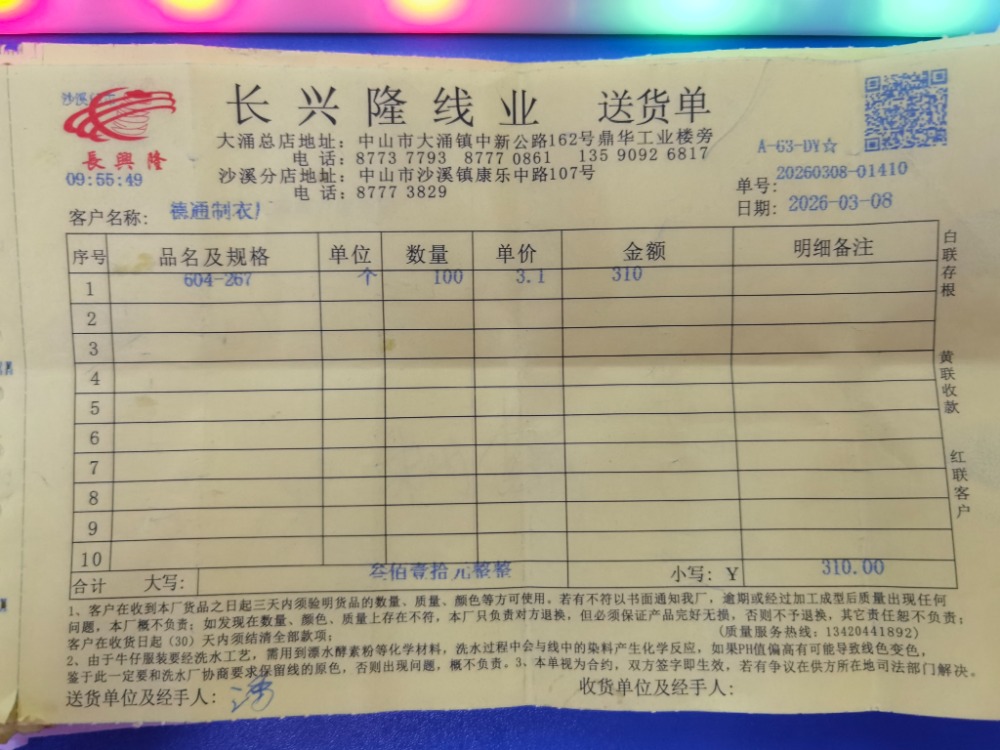 沙溪
長興隆
09:55:49
长兴隆线业 送货单
大涌总店地址：中山市大涌镇中新公路162号鼎华工业楼旁
电 话：8773 7793 8777 0861 135 9092 6817
沙溪分店地址：中山市沙溪镇康乐中路107号
电 话：8777 3829
A-63-DY☆
单号：20260308-01410
日期：2026-03-08
客户名称：德通制衣厂
序号 品名及规格 单位 数量 单价 金额 明细备注
1 604-267 个 100 3.1 310
2
3
4
5
6
7
8
9
10
合计 大写：叁佰壹拾元整整 小写：Y 310.00
白联存根
黄联收款
红联客户
1、客户在收到本厂货品之日起三天内须验明货品的数量、质量、颜色等方可使用。若有不符以书面通知我厂，逾期或经过加工成型后质量出现任何
问题，本厂概不负责；如发现在数量、颜色、质量上存在不符，本厂只负责对方退换，但必须保证产品完好无损，否则不予退换，其它责任恕不负责；
客户在收货日起（30）天内须结清全部款项；（质量服务热线：13420441892）
2、由于牛仔服装要经洗水工艺，需用到漂水酵素粉等化学材料，洗水过程中会与线中的染料产生化学反应，如果PH值偏高有可能导致线色变色，
鉴于此一定要和洗水厂协商要求保留线的原色，否则出现问题，概不负责。3、本单视为合约，双方签字即生效，若有争议在供方所在地司法部门解决。
送货单位及经手人：
收货单位及经手人：